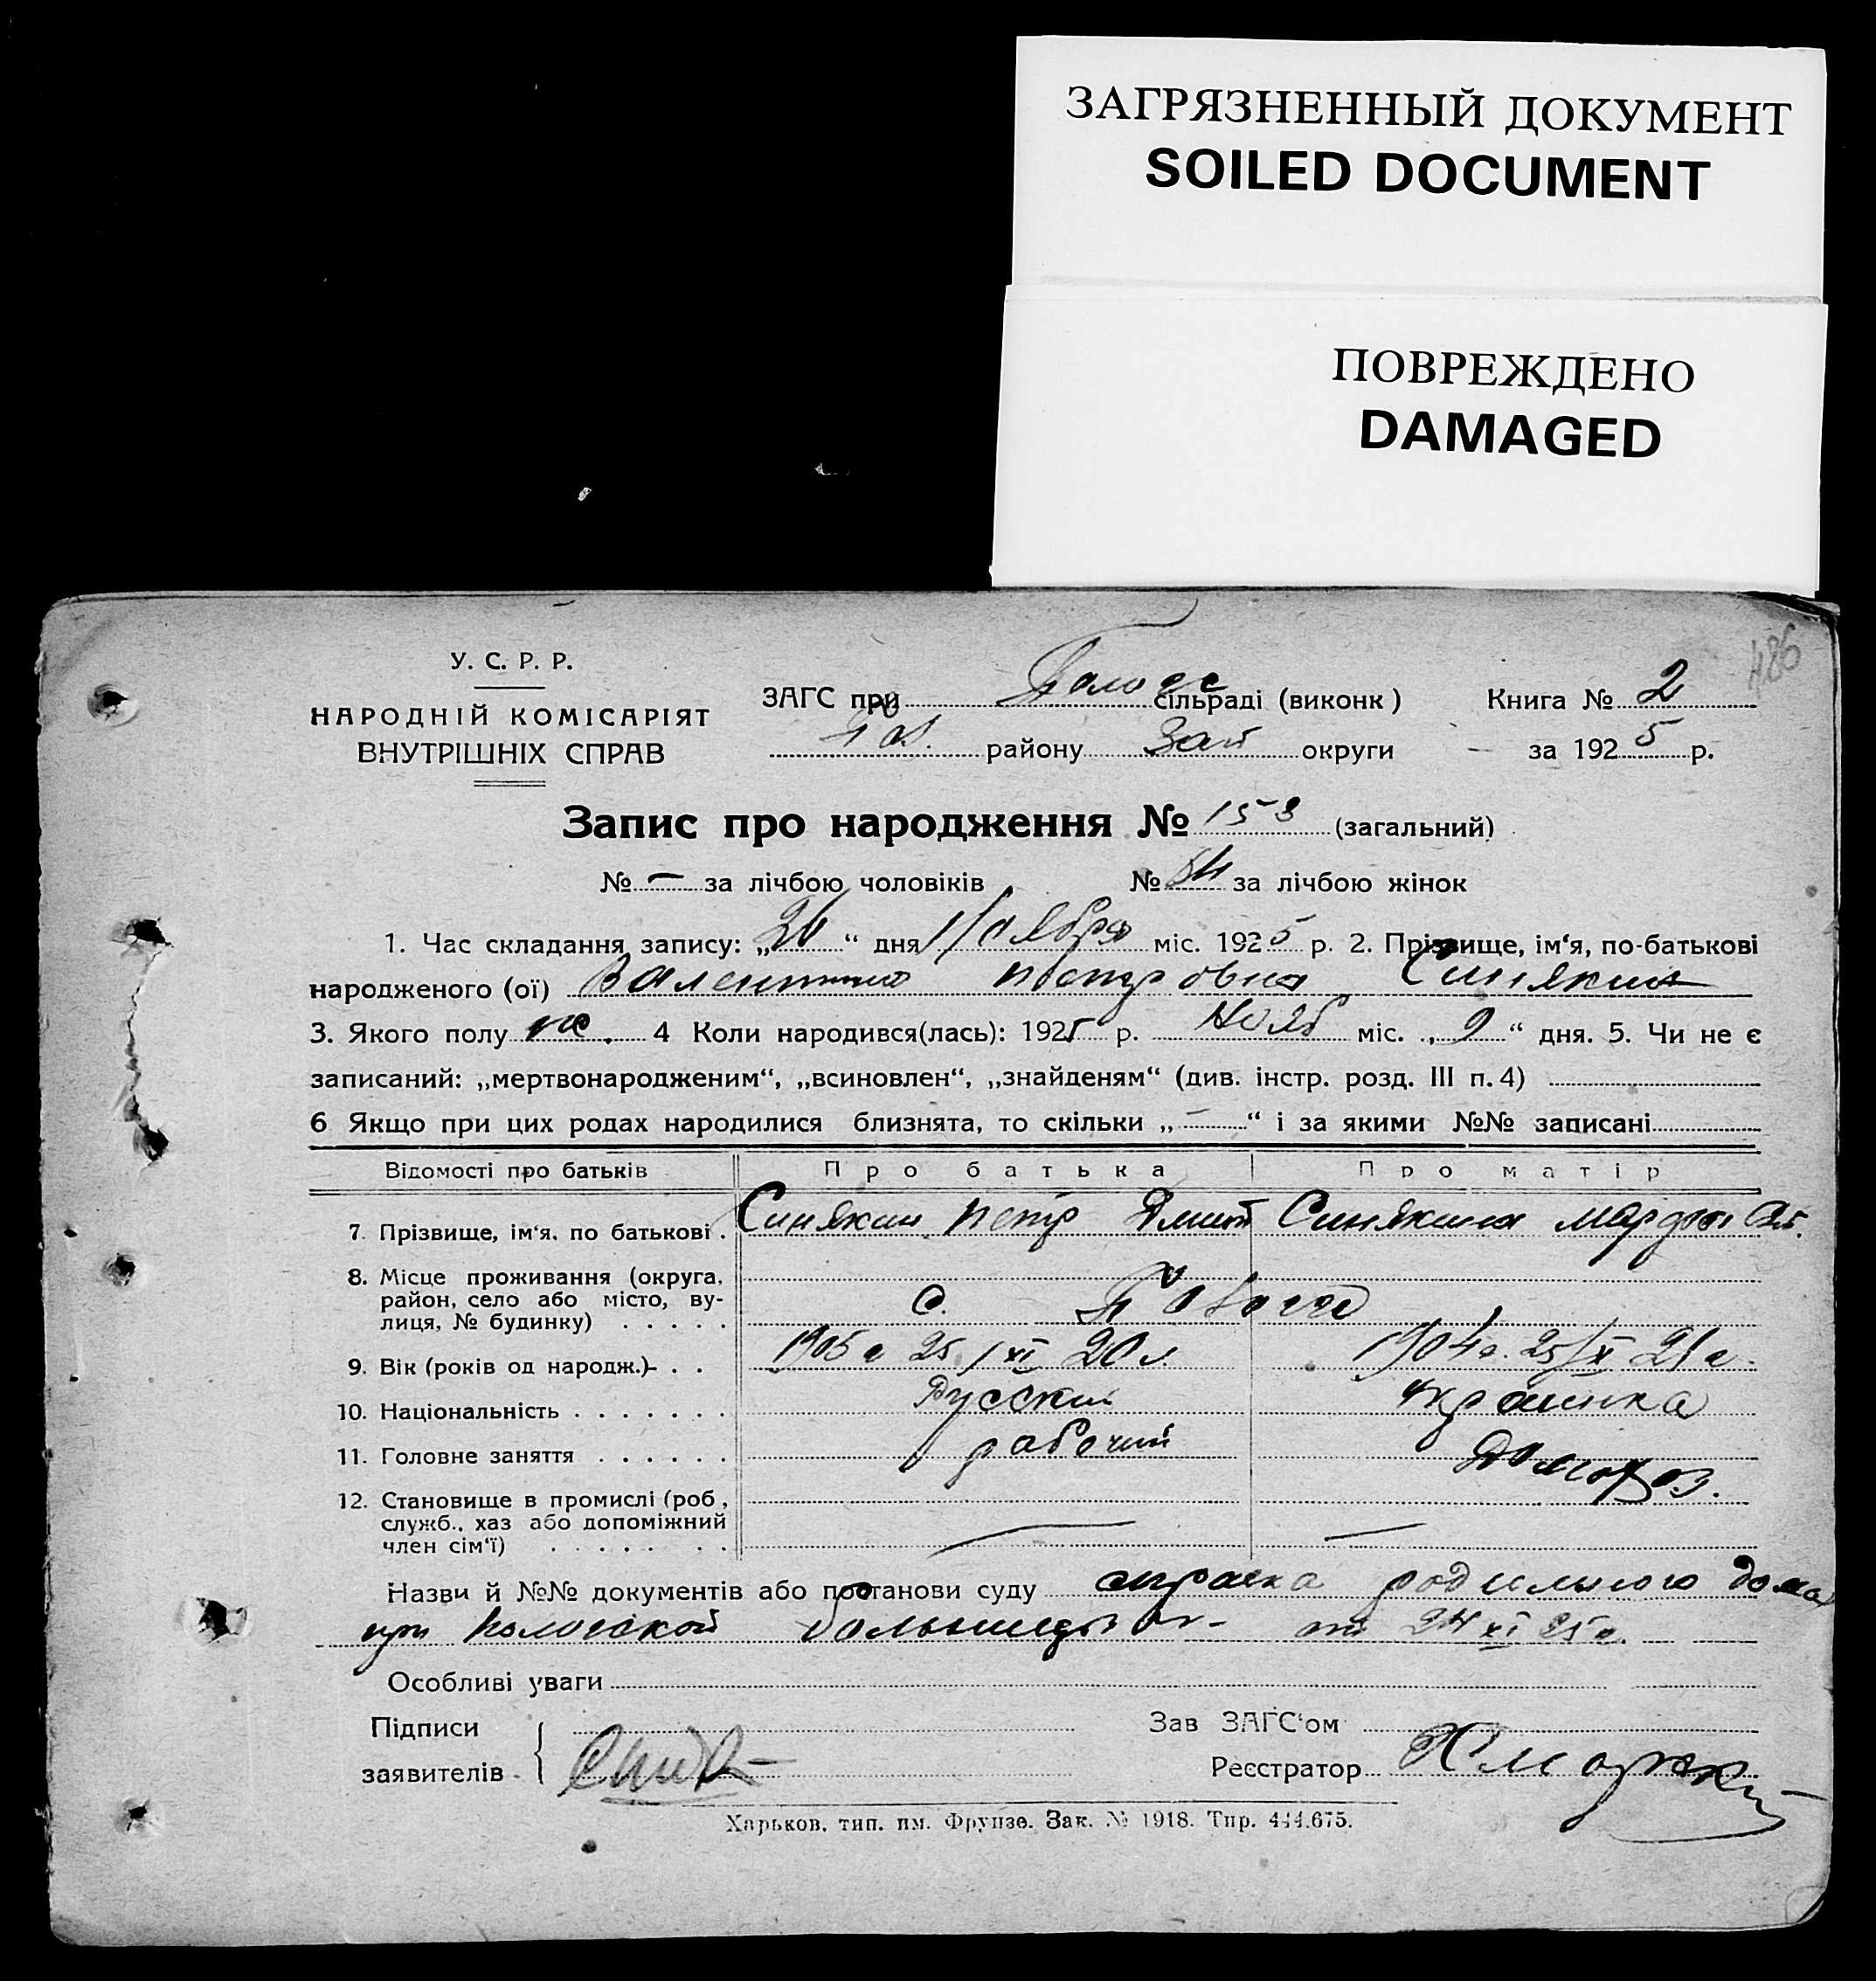 ЗАГРЯЗНЕННЫЙ ДОКУМЕНТ
SOILED DOCUMENT
ПОВРЕЖДЕНО
DAMAGED
486
У. С. Р. Р.
НАРОДНІЙ КОМІСАРІЯТ
ВНУТРІШНІХ СПРАВ
ЗАГС при сільраді (виконк) Книга № 2
району Зап округи за 1925 р.
Запис про народження № 153 (загальний)
№ — за лічбою чоловіків № за лічбою жінок
1. Час складання запису: „26“ дня Ноября міс. 1925 р. 2. Прізвище, ім'я, по-батькові
народженого (ої) Валентина Петровна Синякин
3. Якого полу же. 4 Коли народився(лась): 1925 р. Нояб міс. „9“ дня. 5. Чи не є
записаний: „мертвонародженим“, „всиновлен“, „знайденям“ (див. інстр. розд. III п. 4)
6 Якщо при цих родах народилися близнята, то скільки „—“ і за якими №№ записані
Відомості про батьків Про батька Про матір
7. Прізвище, ім'я, по батькові . Синякин Петр Дмит Синякина Марфа
8. Місце проживання (округа, район, село або місто, вулиця, № будинку) . . . . . с. Пологи
9. Вік (років од народж.)- . . 1905 г 25/XI 20 л. 1904 г. 25/X 21 г.
10. Національність . . . . . . . Русский украинка
11. Головне заняття . . . . . . рабочий Домохоз.
12. Становище в промислі (роб, служб., хаз або допоміжний член сім'ї) . . . . . . . — —
Назви й №№ документів або постанови суду справка родильного дома
при Пологской больнице от 24 XI 25 г.
Особливі уваги
Підписи Зав ЗАГС'ом
заявителів Реєстратор
Харьков, тип. им. Фрунзе. Зак. № 1918. Тир. 444.675.